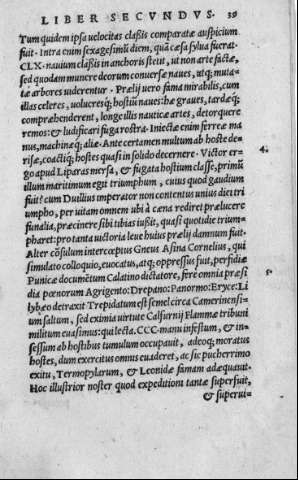 LIBER SECVNDVS. 39
Tum quidem ipsa velocitas classis comparatæ auspicium
fuit. Intra enim sexagesimũ diem, quã cæsa sylua fuerat.
CLX. nauium classis in anchoris stetit, ut non arte factæ,
sed quodam munere deorum conuersæ naues, utq; muta-
tæ arbores uiderentur. Prælij uero fama mirabilis, cum
illas celeres, uolucresq; hostiũ naues: hæ graues, tardæq;
compræhenderent, longe illis nauticæ artes, detorquere
remos: & ludificari fuga rostra. Iniectæ enim ferreæ ma
nus, machinæq; aliæ. Ante certamen multum ab hoste de-
risæ, coactiq; hostes quasi in solido decernere. Victor er-
go apud Liparas mersa, & fugata hostium classe, primũ
illum maritimum egit triumphum, cuius quod gaudium
fuit? cum Duillius imperator non contentus unius diei tri
umpho, per uitam omnem ubi à cœna rediret prælucere
funalia, præcinere sibi tibias iußit, quasi quotidie trium-
pharet: pro tanta uictoria leue huius prælij damnum fuit.
Alter cõsulum interceptus Gneus Asina Cornelius, qui
simulato colloquio, euocatus, atq; oppressus fuit, perfidiæ
Punicæ documẽtum Calatino dictatore, fere omnia præsi
dia pœnorum Agrigento: Drepano: Panormo: Eryce: Li
lybæo detraxit Trepidatum est semel circa Camerinensi-
um saltum, sed eximia virtute Calfurnij Flammæ tribuni
militum euasimus: qui lecta. CCC. manu infestum, & in-
sessum ab hostibus tumulum occupauit, adeoq; moratus
hostes, dum exercitus omnis euaderet, ac sic pucherrimo
exitu, Termopylarum, & Leonidæ famam adæquauit.
Hoc illustrior noster quod expeditioni tantæ superfuit,
& superui-
4.
5.